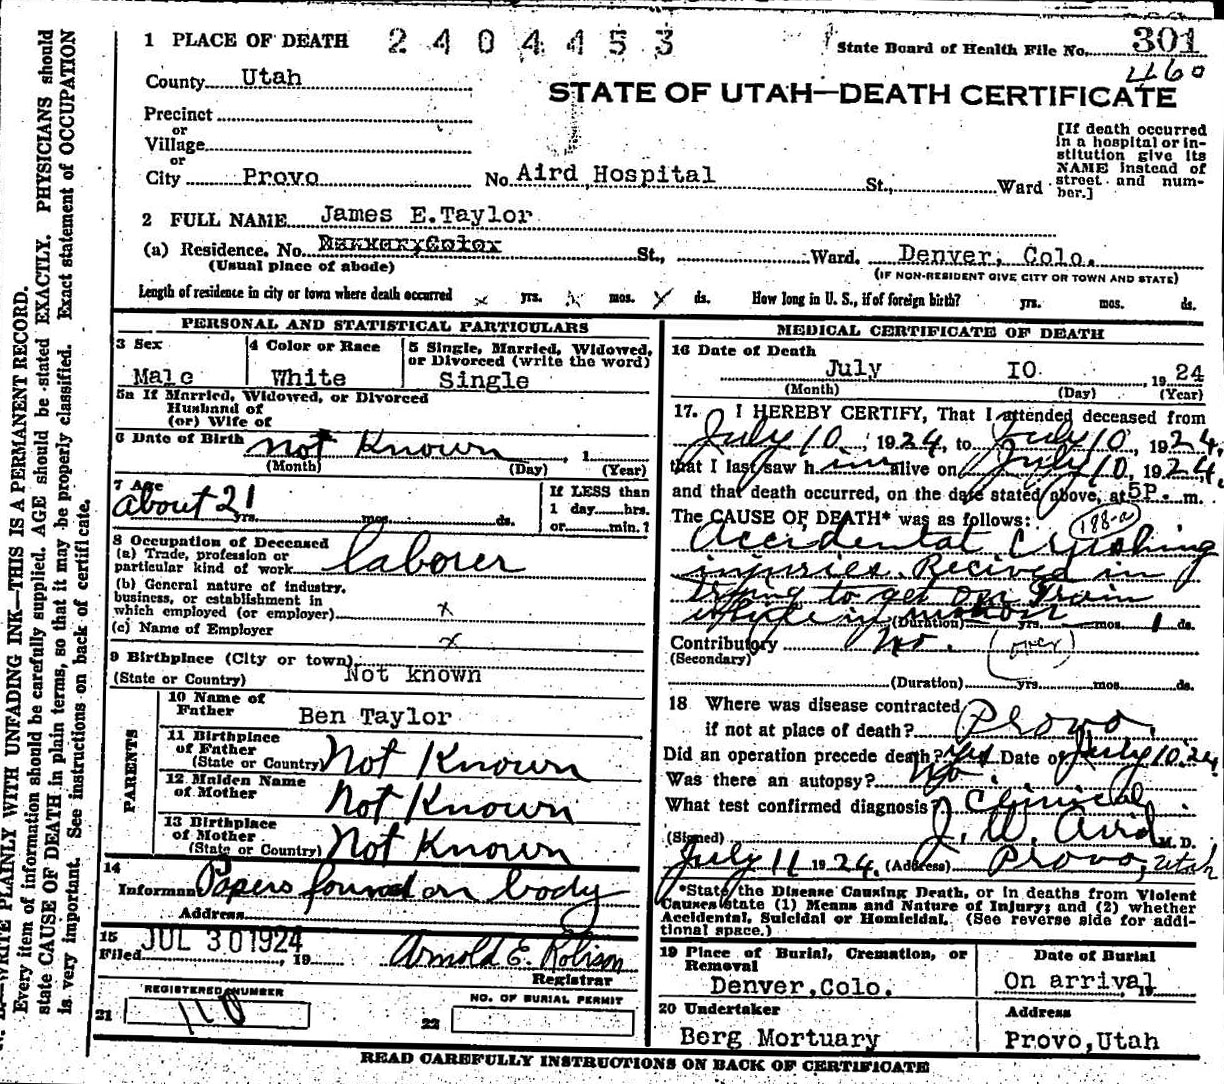 1 PLACE OF DEATH 2404453 State Board of Health File No. 301
460
County Utah
STATE OF UTAH—DEATH CERTIFICATE
Precinct
or
Village
or
City Provo No. Aird Hospital St., Ward
[If death occurred
in a hospital or in-
stitution give its
NAME instead of
street and num-
ber.]
2 FULL NAME James E.Taylor
(a) Residence. No. St., Ward. Denver, Colo.
(Usual place of abode) (IF NON-RESIDENT GIVE CITY OR TOWN AND STATE)
Length of residence in city or town where death occurred x yrs. x mos. x ds. How long in U. S., if of foreign birth? yrs. mos. ds.
PERSONAL AND STATISTICAL PARTICULARS
3 Sex
Male
4 Color or Race
White
5 Single, Married, Widowed,
or Divorced (write the word)
Single
5a If Married, Widowed, or Divorced
Husband of
(or) Wife of
6 Date of Birth not Known , 1
(Month) (Day) (Year)
7 Age
about 21
yrs. mos. ds.
If LESS than
1 day hrs.
or min.?
8 Occupation of Deceased
(a) Trade, profession or
particular kind of work laborer
(b) General nature of industry,
business, or establishment in
which employed (or employer) x
(c) Name of Employer x
9 Birthplace (City or town)
(State or Country) Not known
PARENTS
10 Name of
Father Ben Taylor
11 Birthplace
of Father
(State or Country) Not Known
12 Maiden Name
of Mother Not Known
13 Birthplace
of Mother
(State or Country) Not Known
14
Informant Papers found on body
Address
15
Filed JUL 30 1924, 19 Arnold E. Robison
Registrar
REGISTERED NUMBER
21 110
NO. OF BURIAL PERMIT
22
MEDICAL CERTIFICATE OF DEATH
16 Date of Death
July 10 , 19 24
(Month) (Day) (Year)
17. I HEREBY CERTIFY, That I attended deceased from
July 10, 1924, to July 10, 1924,
that I last saw him alive on July 10, 1924,
and that death occurred, on the date stated above, at 5P. m.
The CAUSE OF DEATH* was as follows: 188-a
Accidental Crushing
injuries. Recived in
trying to get on Train
while in motion
(Duration) yrs. mos. 1 ds.
Contributory no. (over)
(Secondary)
(Duration) yrs. mos. ds.
18 Where was disease contracted
if not at place of death? Provo.
Did an operation precede death? Yes Date of July 10.24
Was there an autopsy? No
What test confirmed diagnosis? Clinical
(Signed) J. W. Aird M. D.
July 11 1924. (Address) Provo, Utah
*State the Disease Causing Death, or in deaths from Violent
Causes state (1) Means and Nature of Injury; and (2) whether
Accidental, Suicidal or Homicidal. (See reverse side for addi-
tional space.)
19 Place of Burial, Cremation, or
Removal
Denver,Colo.
Date of Burial
On arrival, 19
20 Undertaker
Berg Mortuary
Address
Provo,Utah
READ CAREFULLY INSTRUCTIONS ON BACK OF CERTIFICATE
WRITE PLAINLY WITH UNFADING INK—THIS IS A PERMANENT RECORD.
Every item of information should be carefully supplied. AGE should be stated EXACTLY. PHYSICIANS should
state CAUSE OF DEATH in plain terms, so that it may be properly classified. Exact statement of OCCUPATION
is very important. See instructions on back of certificate.